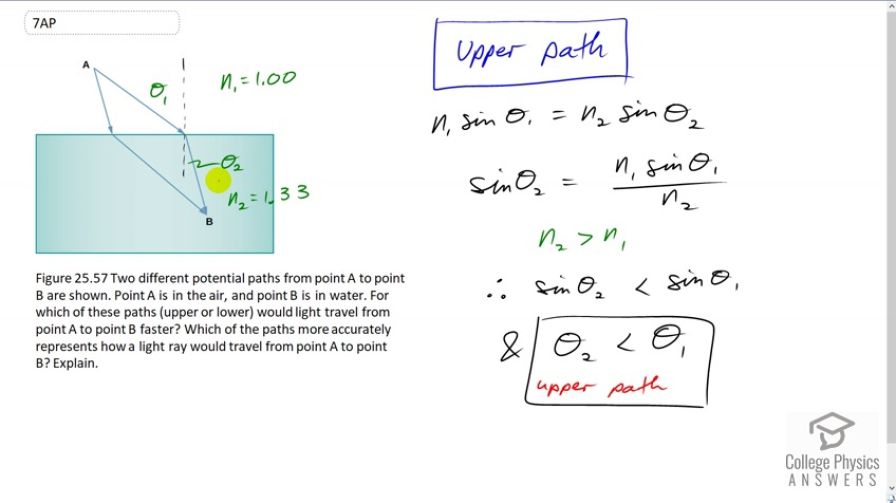 7AP
A
θ₁
n₁ = 1.00
θ₂
n₂ = 1.33
B
Figure 25.57 Two different potential paths from point A to point
B are shown. Point A is in the air, and point B is in water. For
which of these paths (upper or lower) would light travel from
point A to point B faster? Which of the paths more accurately
represents how a light ray would travel from point A to point
B? Explain.
Upper path
n₁ sinθ₁ = n₂ sinθ₂
sinθ₂ = n₁ sinθ₁ / n₂
n₂ > n₁
∴ sinθ₂ < sinθ₁
& θ₂ < θ₁
upper path
College Physics
ANSWERS